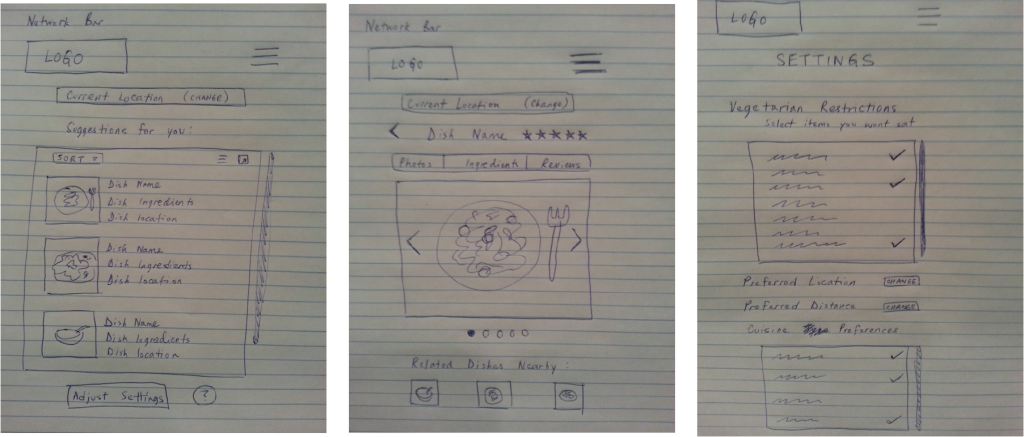 Network Bar
LOGO
Current Location (CHANGE)
Suggestions for you:
SORT
Dish Name
Dish Ingredients
Dish location
Dish Name
Dish Ingredients
Dish location
Dish Name
Dish Ingredients
Dish location
Adjust Settings ?
Network Bar
LOGO
Current Location (Change)
< Dish Name ★★★★★
Photos Ingredients Reviews
< >
Related Dishes Nearby:
LOGO
SETTINGS
Vegetarian Restrictions
Select items you wont eat
Preferred Location CHANGE
Preferred Distance CHANGE
Cuisine Preferences